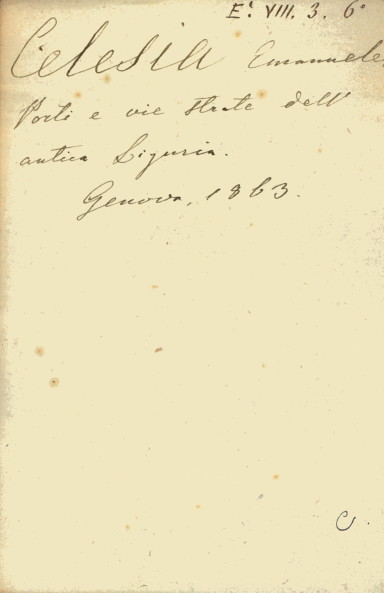 E. VIII. 3. 6°
Celesia Emanuele,
Porti e vie strate dell'
antica Liguria.
Genova, 1863.
C.